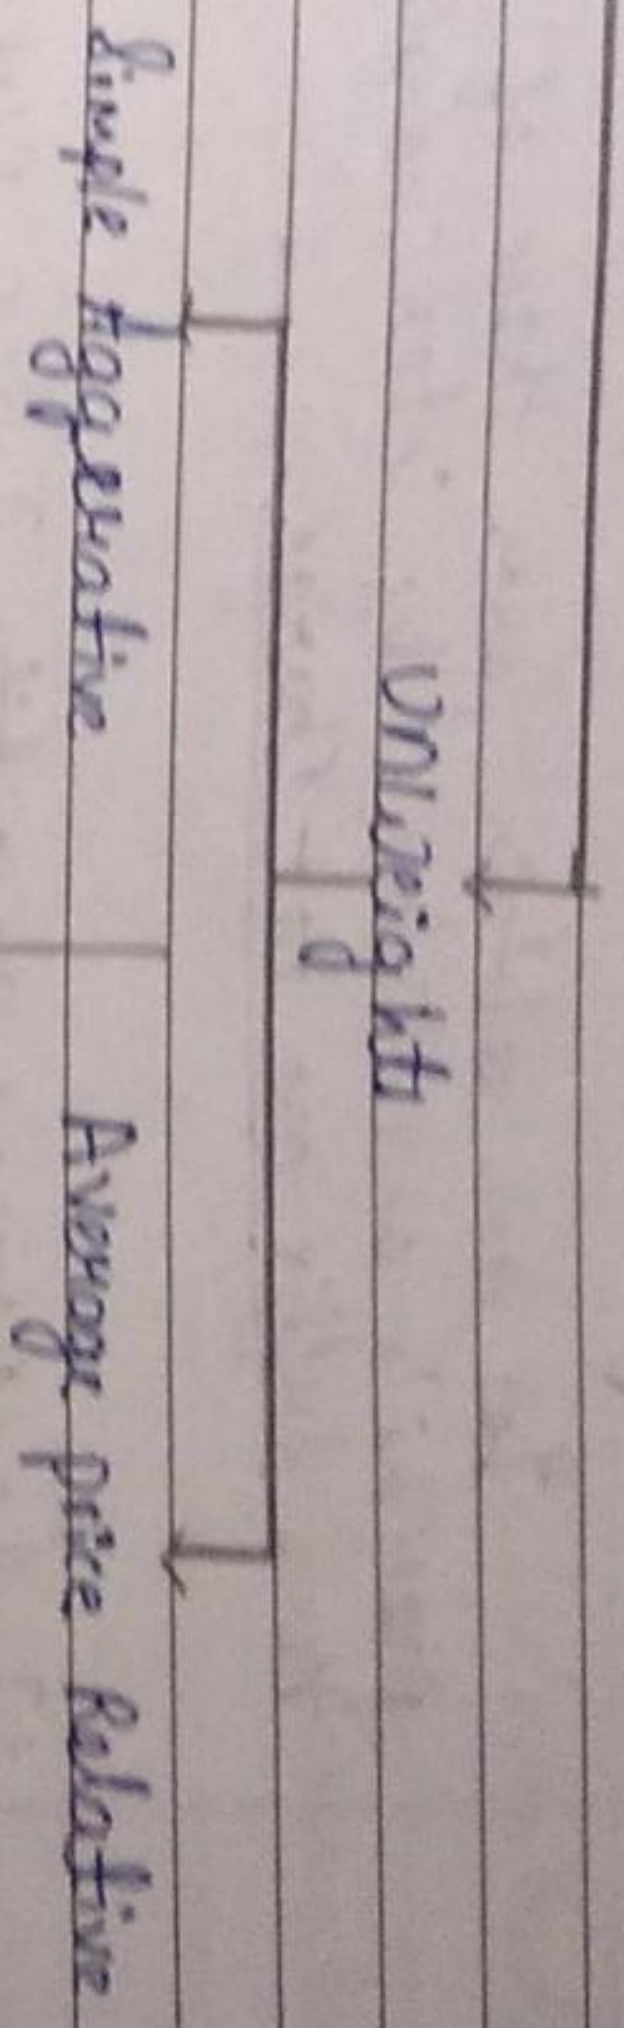 Unweighted
Simple Aggerative Average price Relative